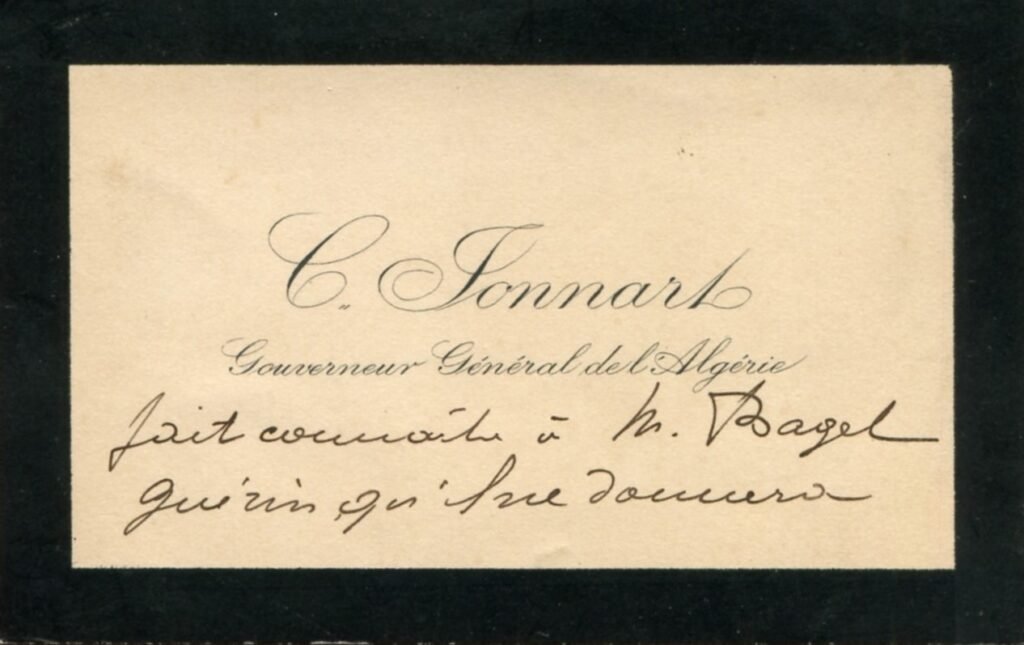 C. Jonnart
Gouverneur Général de l'Algérie
fait connaître à M. Bagel
Guérin, qu'il ne donnera